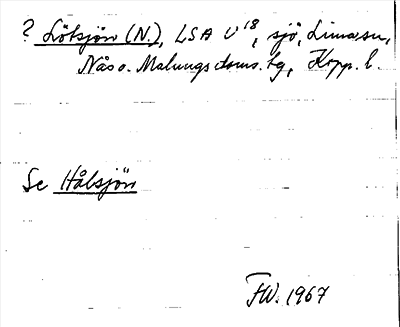 ? Lötsjön (N.), LSA U 18, sjö, Lima sn,
Nås o. Malungs doms. hg, Kopp. l.
Se Hålsjön
FW. 1967